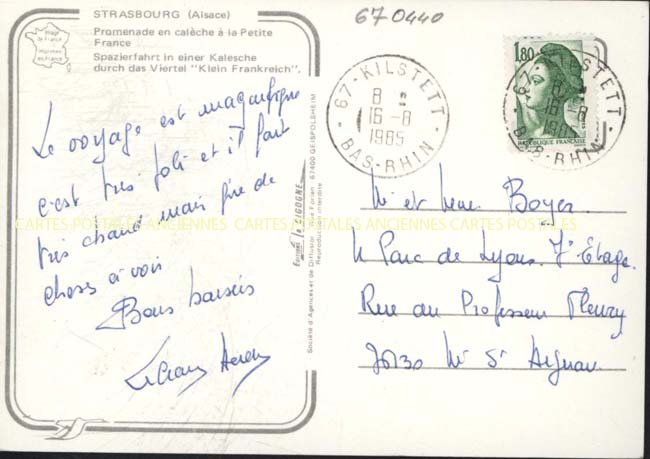 670440
STRASBOURG (Alsace)
Promenade en calèche à la Petite
France
Spazierfahrt in einer Kalesche
durch das Viertel "Klein Frankreich".
Image
de France
Imprimée
en France
Le voyage est magnifique
c'est très joli et il fait
très chaud mais plein de
choses à voir
Bons baisers
Editions la CIGOGNE
Société d'Agences et de Diffusion 67400 GEISPOLSHEIM
Reproduction interdite
67 - KILSTETT -
8 H
16-8
1985
BAS-RHIN
1,80
REPUBLIQUE FRANCAISE
67 - KILSTETT -
8 H
16-8
1985
BAS-RHIN
Mr et Mme Boyer
Parc de Lyons 7e Etage
Rue du Professeur Fleury
76130 Mt St Aignan
CARTES POSTALES ANCIENNES CARTES POSTALES ANCIENNES CARTES POSTALES ANCIENNES